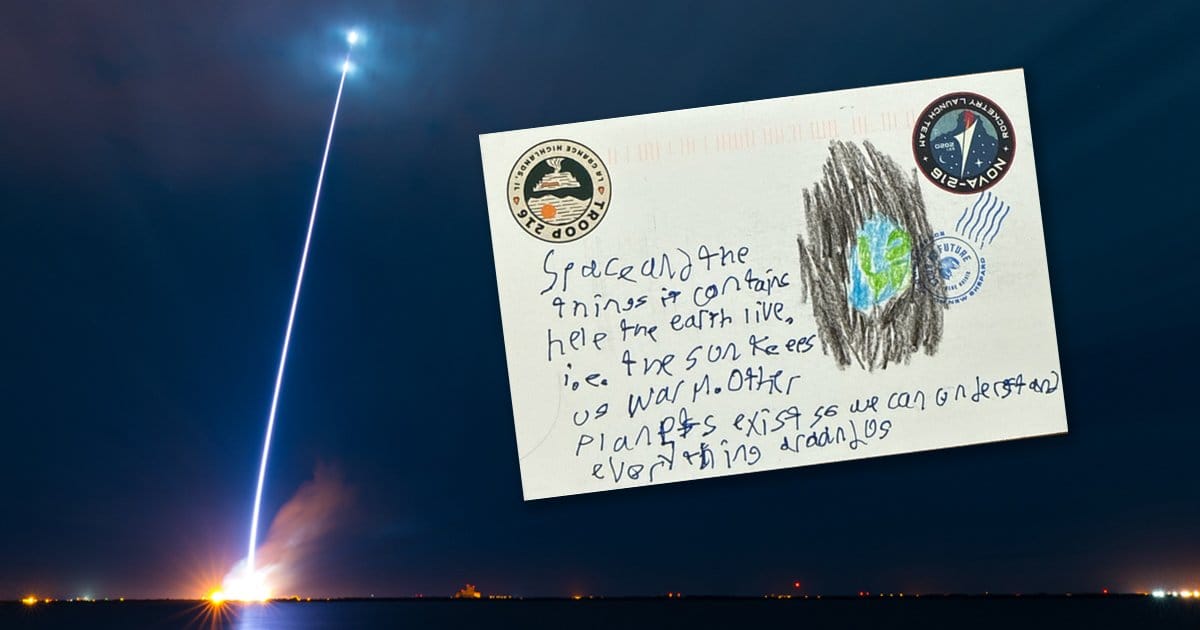 LA GRANGE HIGHLANDS, IL
TROOP 216
ROCKETRY LAUNCH TEAM
EST. 2020
NOVA-216
FUTURE
NEW SHEPARD
Space and the
things it contains
help the earth live.
i.e. the sun keeps
us warm. Other
planets exist so we can understand
everything around us